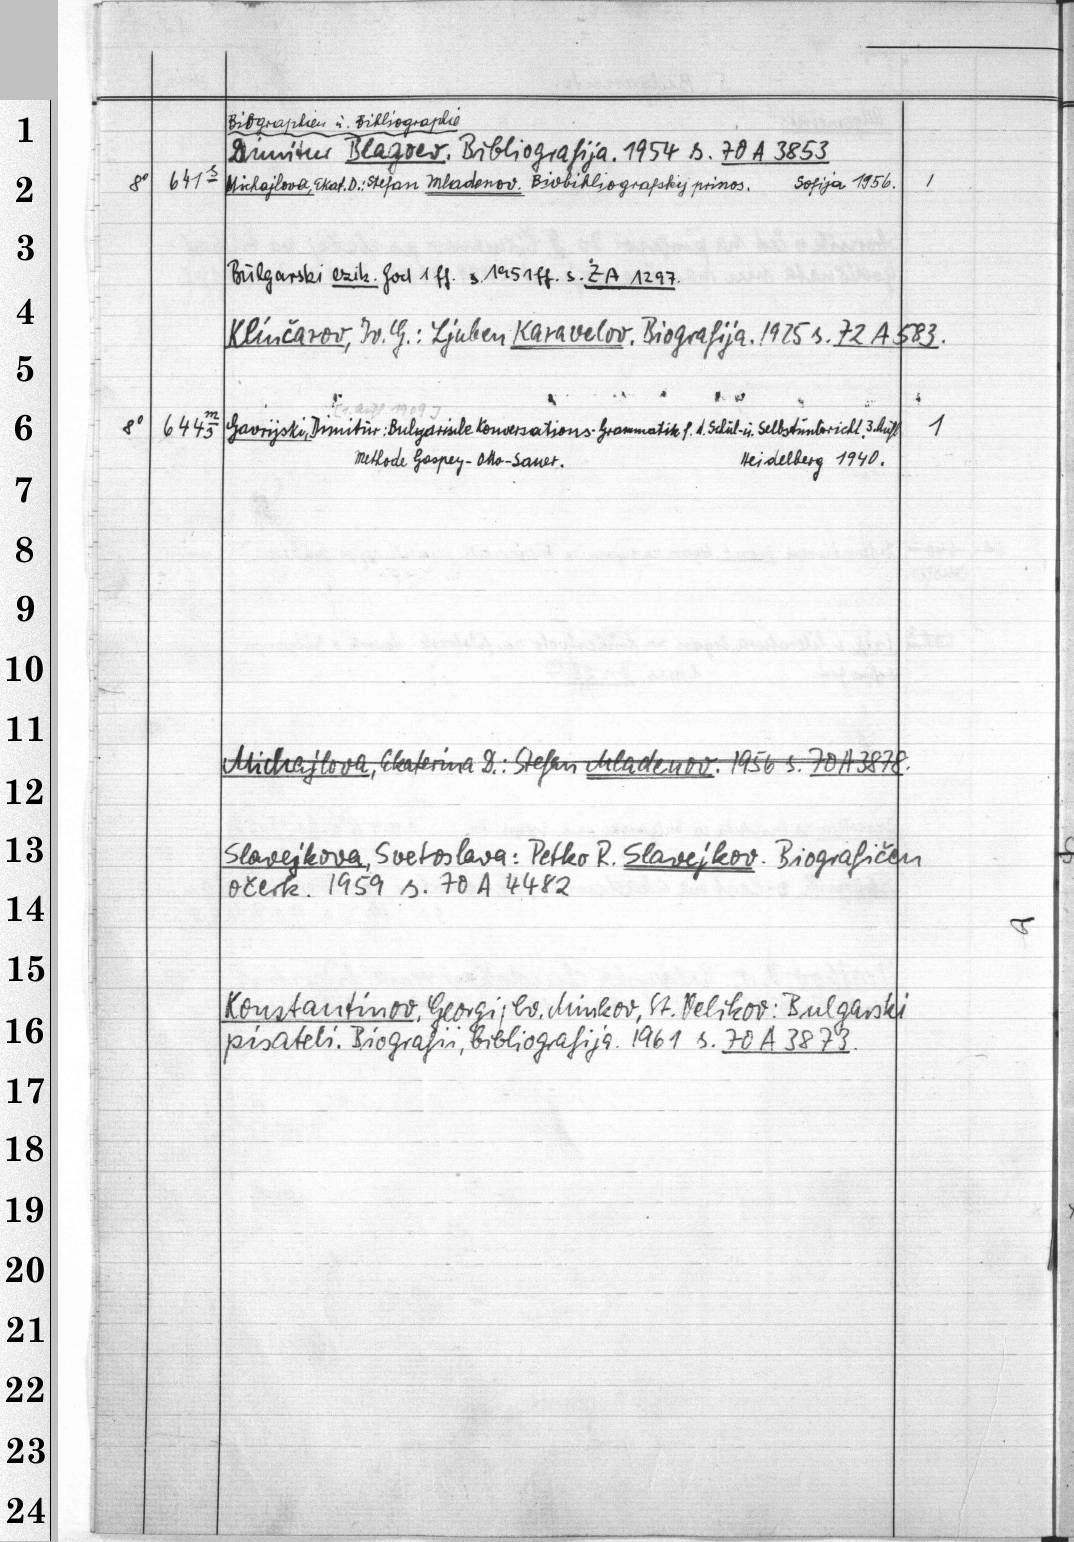 Biographien u. Bibliographie
1
Dimitur Blagoev. Bibliografija. 1954 s. 70 A 3853
2 8° 641 s Michajlova, Ekat. D.: Stefan Mladenov. Biobibliografskij prinos. Sofija 1956. 1
3
Bŭlgarski ezik. God 1 ff. s. 1951 ff. s. ŽA 1297.
4
Klinčarov, Iv. G.: Ljuben Karavelov. Biografija. 1925 s. 72 A 583.
5
[1. Aufl 1909]
6 8° 644 m/5 Gavrijski, Dimitŭr: Bulgarische Konversations-Grammatik f. d. Schul- u. Selbstunterricht. 3. Aufl 1
Methode Gaspey-Otto-Sauer. Heidelberg 1940.
7
8
9
10
11
Michajlova, Ekaterina D.: Stefan Mladenov. 1956 s. 70 A 3878.
12
13 Slavejkova, Svetoslava: Petko R. Slavejkov. Biografičen
očerk. 1959 s. 70 A 4482
14
15
Konstantinov, Georgi, Cv. Minkov, St. Velikov: Bulgarski
16 pisateli. Biografii, bibliografija. 1961 s. 70 A 3873.
17
18
19
20
21
22
23
24